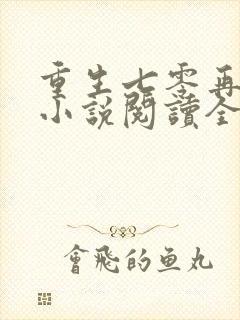 重生七零再
小說閱讀全
會飛的鱼丸